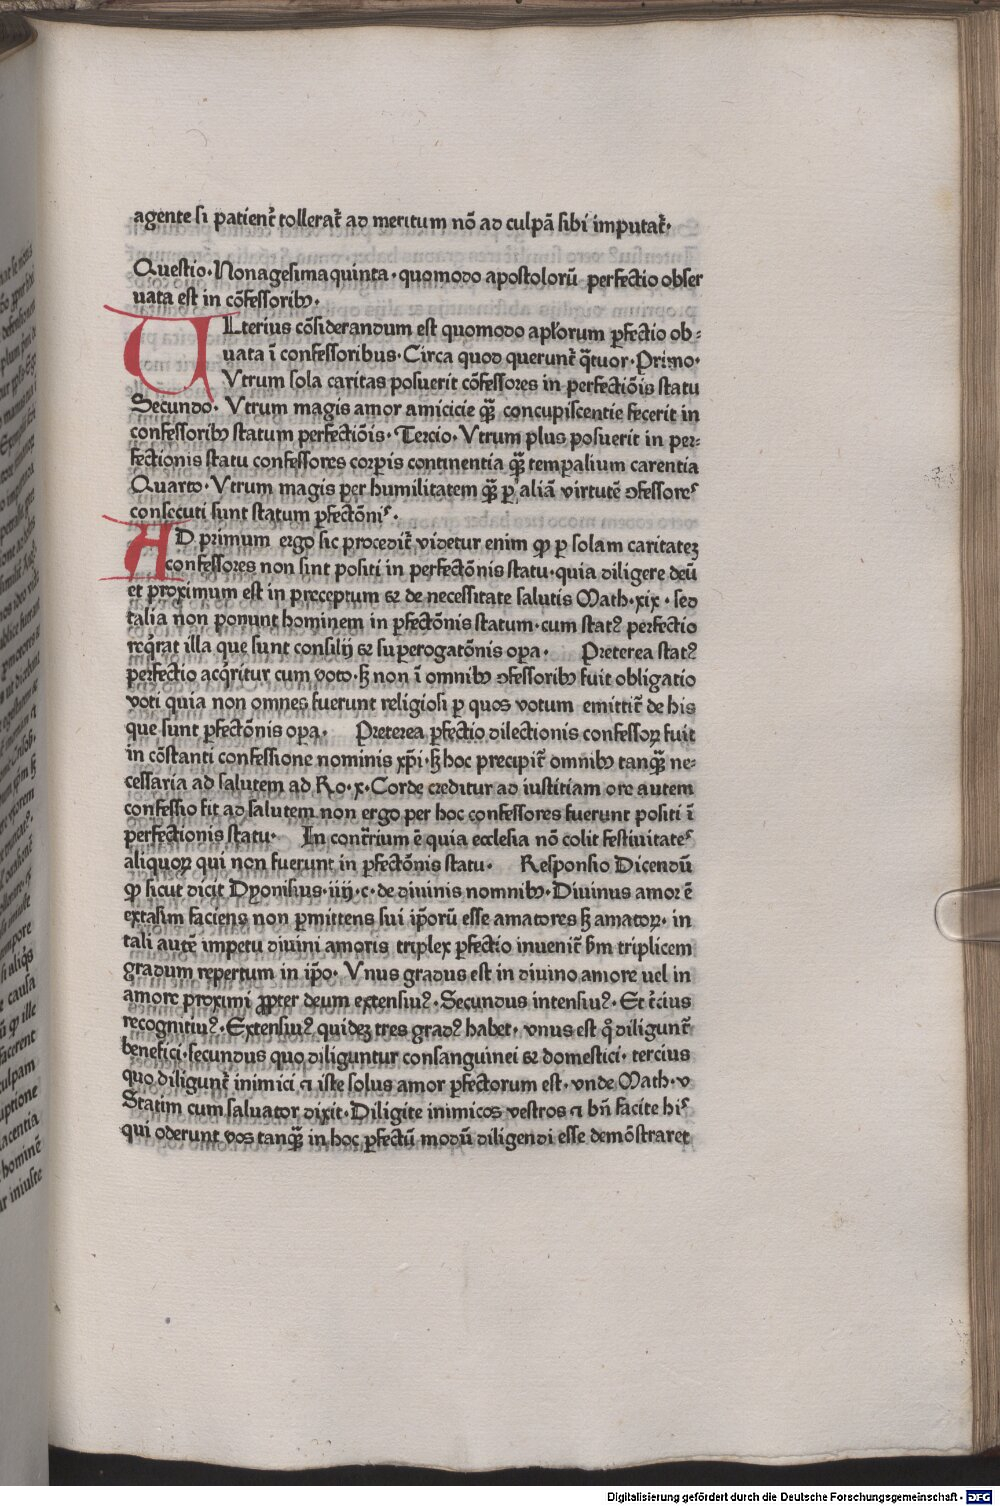 agente si patient̄ tollerat̄ ad meritum nō ad culpā sibi imputat̄·
Questio·Nonagesimaquinta·quomodo apostolorū perfectio obser
uata est in cōfessoribꝰ·
ULterius cōsiderandum est quomodo apl̄orum ꝑfectio ob⸗
uata ī confessoribus·Circa quod querunt̄ q̄tuor·Primo·
Vtrum sola caritas posuerit cōfessores in perfectiōis statu
Secundo· Vtrum magis amor amicicie qꝫ̄ concupiscentie fecerit in
confessoribꝰ statum perfectiōis· Tercio·Vtrum plus posuerit in per⸗
fectionis statu confessores corꝑis continentia qꝫ̄ temꝑalium carentia
Quarto·Vtrum magis per humilitatem qꝫ̄ ꝑ aliā virtutē ꝯfessores
consecuti sunt statum ꝑfectōnis·
AD primum ergo sic procedit̄ videtur enim ꝙ ꝑ solam caritatez
confessores non sint positi in perfectōnis statu·quia diligere deū
et proximum est in preceptum et de necessitate salutis Math·xix·sed
talia non ponunt hominem in ꝑfectōnis statum·cum statꝰ perfectio
reqͥrat illa que sunt consilij et suꝑerogatōnis oꝑa· Preterea statꝰ
perfectio acqͥritur cum voto·sꝫ non ī omnibꝰ ꝯfessoribꝰ fuit obligatio
voti quia non omnes fuerunt religiosi ꝑ quos votum emittit̄ de his
que sunt ꝑfectōnis oꝑa· Preterea ꝑfectio dilectionis confessoꝝ fuit
in cōstanti confessione nominis xp̄i·sꝫ hoc precipit̄ omnibꝰ tanqꝫ̄ ne⸗
cessaria ad salutem ad Ro·x·Corde creditur ad iustitiam ore autem
confessio fit ad salutem non ergo per hoc confessores fuerunt positi ī
perfectionis statu· In cont̄rium ē quia ecclesia nō colit festiuitates
aliquoꝝ qui non fuerunt in ꝑfectōnis statu· Responsio Dicendū
ꝙ sicut dicit Dyonisius·iiij·c·de diuinis nomnibꝰ·Diuinus amor ē
extasim faciens non ꝑmittens sui ip̄orū esse amatores sꝫ amatoꝝ· in
tali autē impetu diuini amoris triplex ꝑfectio inuenit̄ ẜm triplicem
gradum repertum in ip̄o· Vnus gradus est in diuino amore uel in
amore proximi ꝓpter deum extensiuꝰ·Secundus intensiuꝰ·Et t̄cius
recognitiuꝰ·Extensiuꝰ quidez tres gradꝰ habet· vnus est qͦ diligunt̄
benefici·secundus quo diliguntur consanguinei et domestici· tercius
quo diligunt̄ inimici ⁊ iste solus amor ꝑfectorum est·vnde Math·v
Statim cum saluator dixit·Diligite inimicos vestros ⁊ bn̄ facite his
qui oderunt vos tanqꝫ̄ in hoc ꝑfectū modū diligendi esse demōstraret
Digitalisierung gefördert durch die Deutsche Forschungsgemeinschaft - DFG